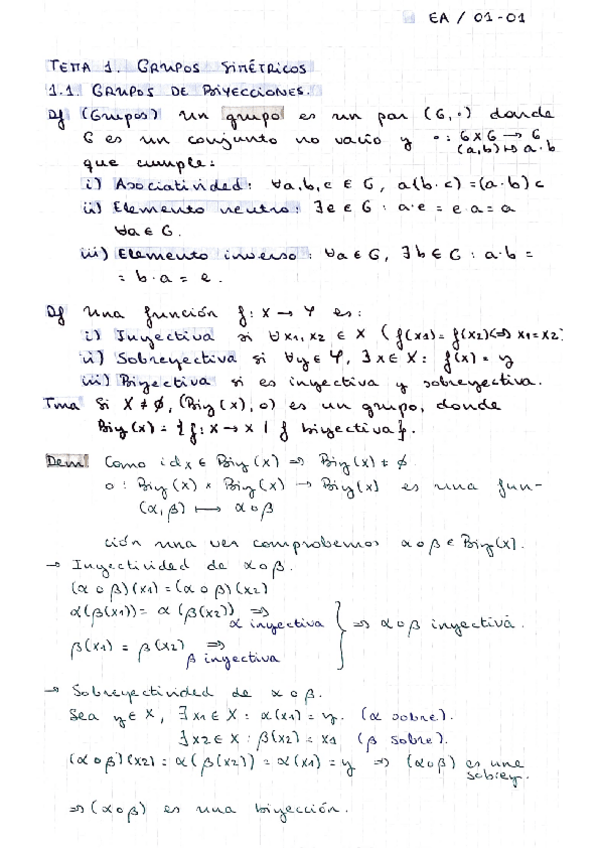 EA / 01-01
TEMA 1. GRUPOS SIMÉTRICOS
1.1. GRUPOS DE BIYECCIONES.
Df (Grupos) Un grupo es un par (G, ·) donde
G es un conjunto no vacío y · : G x G → G
(a,b) ↦ a·b
que cumple:
i) Asociatividad: ∀a,b,c ∈ G, a(b·c) = (a·b)c
ii) Elemento neutro: ∃e ∈ G : a·e = e·a = a
∀a ∈ G.
iii) Elemento inverso: ∀a ∈ G, ∃b ∈ G : a·b =
= b·a = e.
Df Una función f: X → Y es:
i) Inyectiva si ∀x1, x2 ∈ X (f(x1) = f(x2) <=> x1 = x2)
ii) Sobreyectiva si ∀y ∈ Y, ∃x ∈ X : f(x) = y
iii) Biyectiva si es inyectiva y sobreyectiva.
Tma Si X ≠ ∅, (Biy(X), o) es un grupo, donde
Biy(X) = {f: X → X | f biyectiva}.
Dem Como idx ∈ Biy(X) => Biy(X) ≠ ∅.
o : Biy(X) x Biy(X) → Biy(X) es una fun-
(α, β) ↦ α o β
ción una vez comprobemos α o β ∈ Biy(X).
→ Inyectividad de α o β.
(α o β)(x1) = (α o β)(x2)
α(β(x1)) = α(β(x2)) =>
α inyectiva
β(x1) = β(x2) =>
β inyectiva
} => α o β inyectiva.
→ Sobreyectividad de α o β.
Sea y ∈ X, ∃x1 ∈ X : α(x1) = y. (α sobre).
∃x2 ∈ X : β(x2) = x1 (β sobre).
(α o β)(x2) = α(β(x2)) = α(x1) = y => (α o β) es una
sobrey.
=> (α o β) es una biyección.